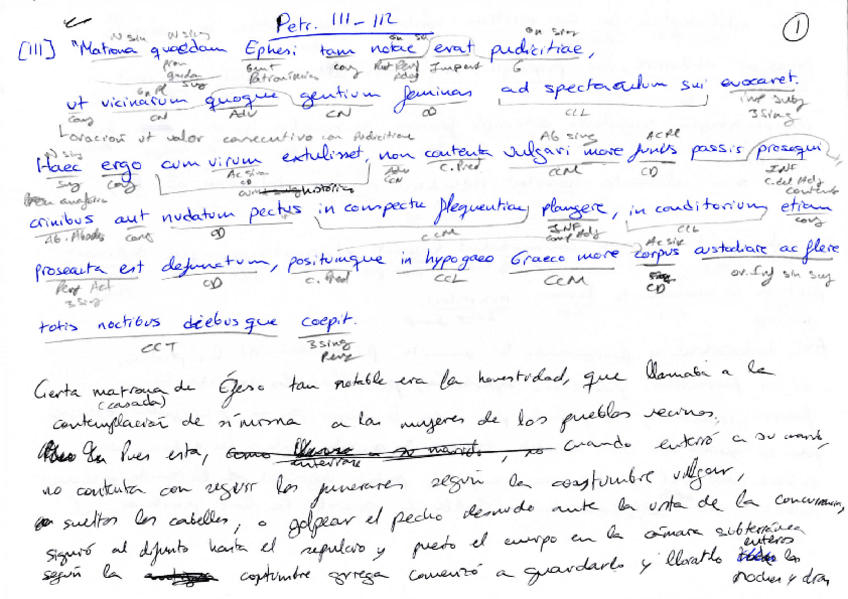 Petr. 111-112
1
N sin N sing Gn sin Gn sing
[111] "Matrona quaedam Ephesi tam notae erat pudicitiae,
pron Gent Patronímico conj Part Perf Adj Imperf G
sing
Gn Pl
ut vicinarum quoque gentium feminas ad spectaculum sui evocaret.
conj CN Adv CN OD CCL Imp Subj
3 Sing
oración ut valor consecutivo con Pudicitiae
N sing Ab sing AC Pl
Haec ergo cum virum extulisset, non contenta vulgari more funus passis prosequi
Suj conj Ac sin CD Adv CN C. Pred CCM CD INF
pron anafórico histórico C. del Adj contenta
crinibus aut nudatum pectus in conspectu frequentiae plangere, in conditorium etiam
conj OD CCM INF Comp Adj CCL conj
Ac sin
prosecuta est defunctum, positumque in hypogaeo Graeco more corpus custodire ac flere
Perf Act CD C. Pred CCL CCM CD or. Inf sin suj
3 Sing
totis noctibus diebusque coepit.
CCT 3 sing
Perf
Cierta matrona de Éfeso tan notable era la honestidad, que llamaba a la
(casada)
contemplación de sí misma a las mujeres de los pueblos vecinos.
Pues esta, como a su marido, no cuando enterró a su marido,
enterrase
no contenta con seguir los funerales según la costumbre vulgar,
sueltos los cabellos, o golpear el pecho desnudo ante la vista de la concurrencia,
siguió al difunto hasta el sepulcro y puesto el cuerpo en la cámara subterránea
según la costumbre griega comenzó a guardarlo y llorarlo enteros las
noches y días